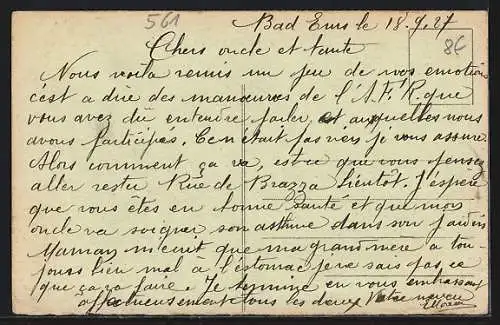 561
Bad Ems le 18.9.27
8€
Chers oncle et tante
Nous voila remis un peu de nos emotions
c'est a dire des manœuvres de l'A.F.R. que
vous avez du entendre parler, et auxquelles nous
avons participés. Cen était pas rien je vous assure.
Alors comment ça va, est ce que vous pensez
aller rester Rue de Brazza bientôt. J'espère
que vous êtes en bonne santé et que mon
oncle va soigner son asthme dans son jardin
Maman m'ecrit que ma grand mere a tou-
jours bien mal à l'estomac je ne sais pas ce
que ça ça faire. Je termine en vous embrassant
affectueusement tous les deux Votre neveu